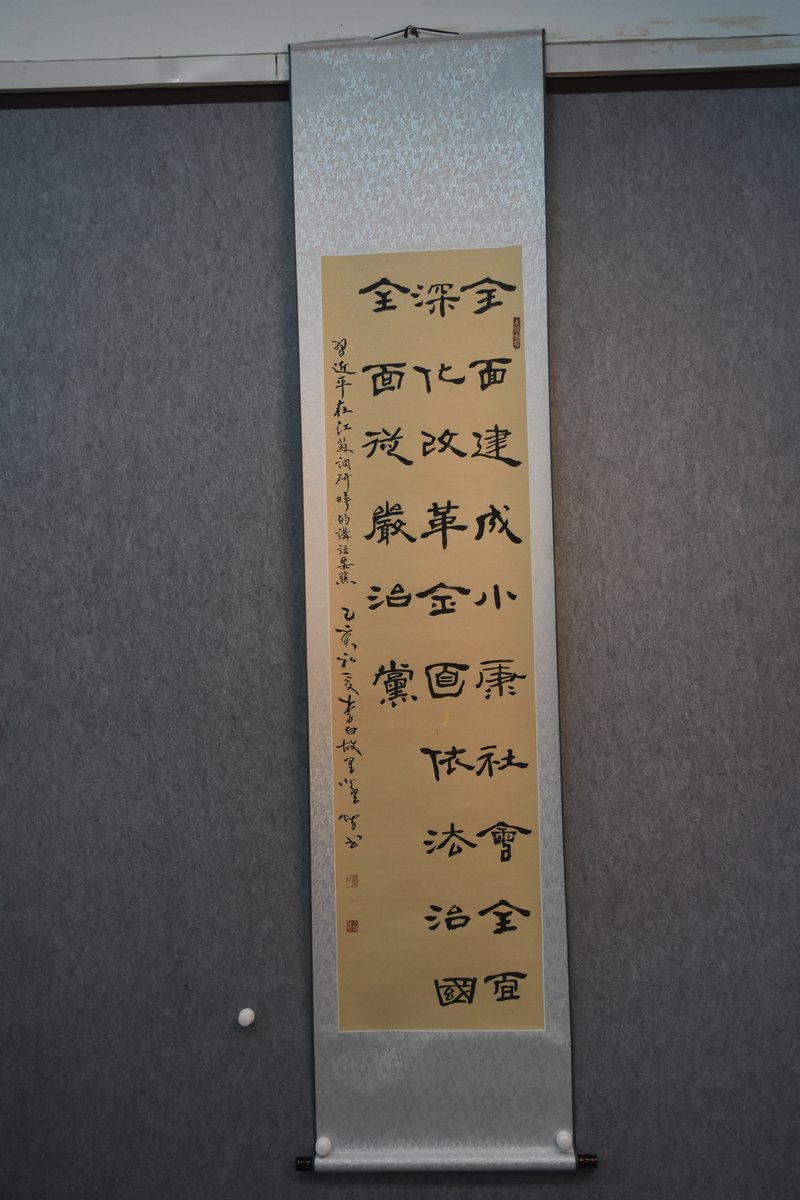 全面建成小康社會全面
深化改革全面依法治國
全面從嚴治黨
習近平在江蘇調研時的講話要點
乙亥初夏李白故里 書